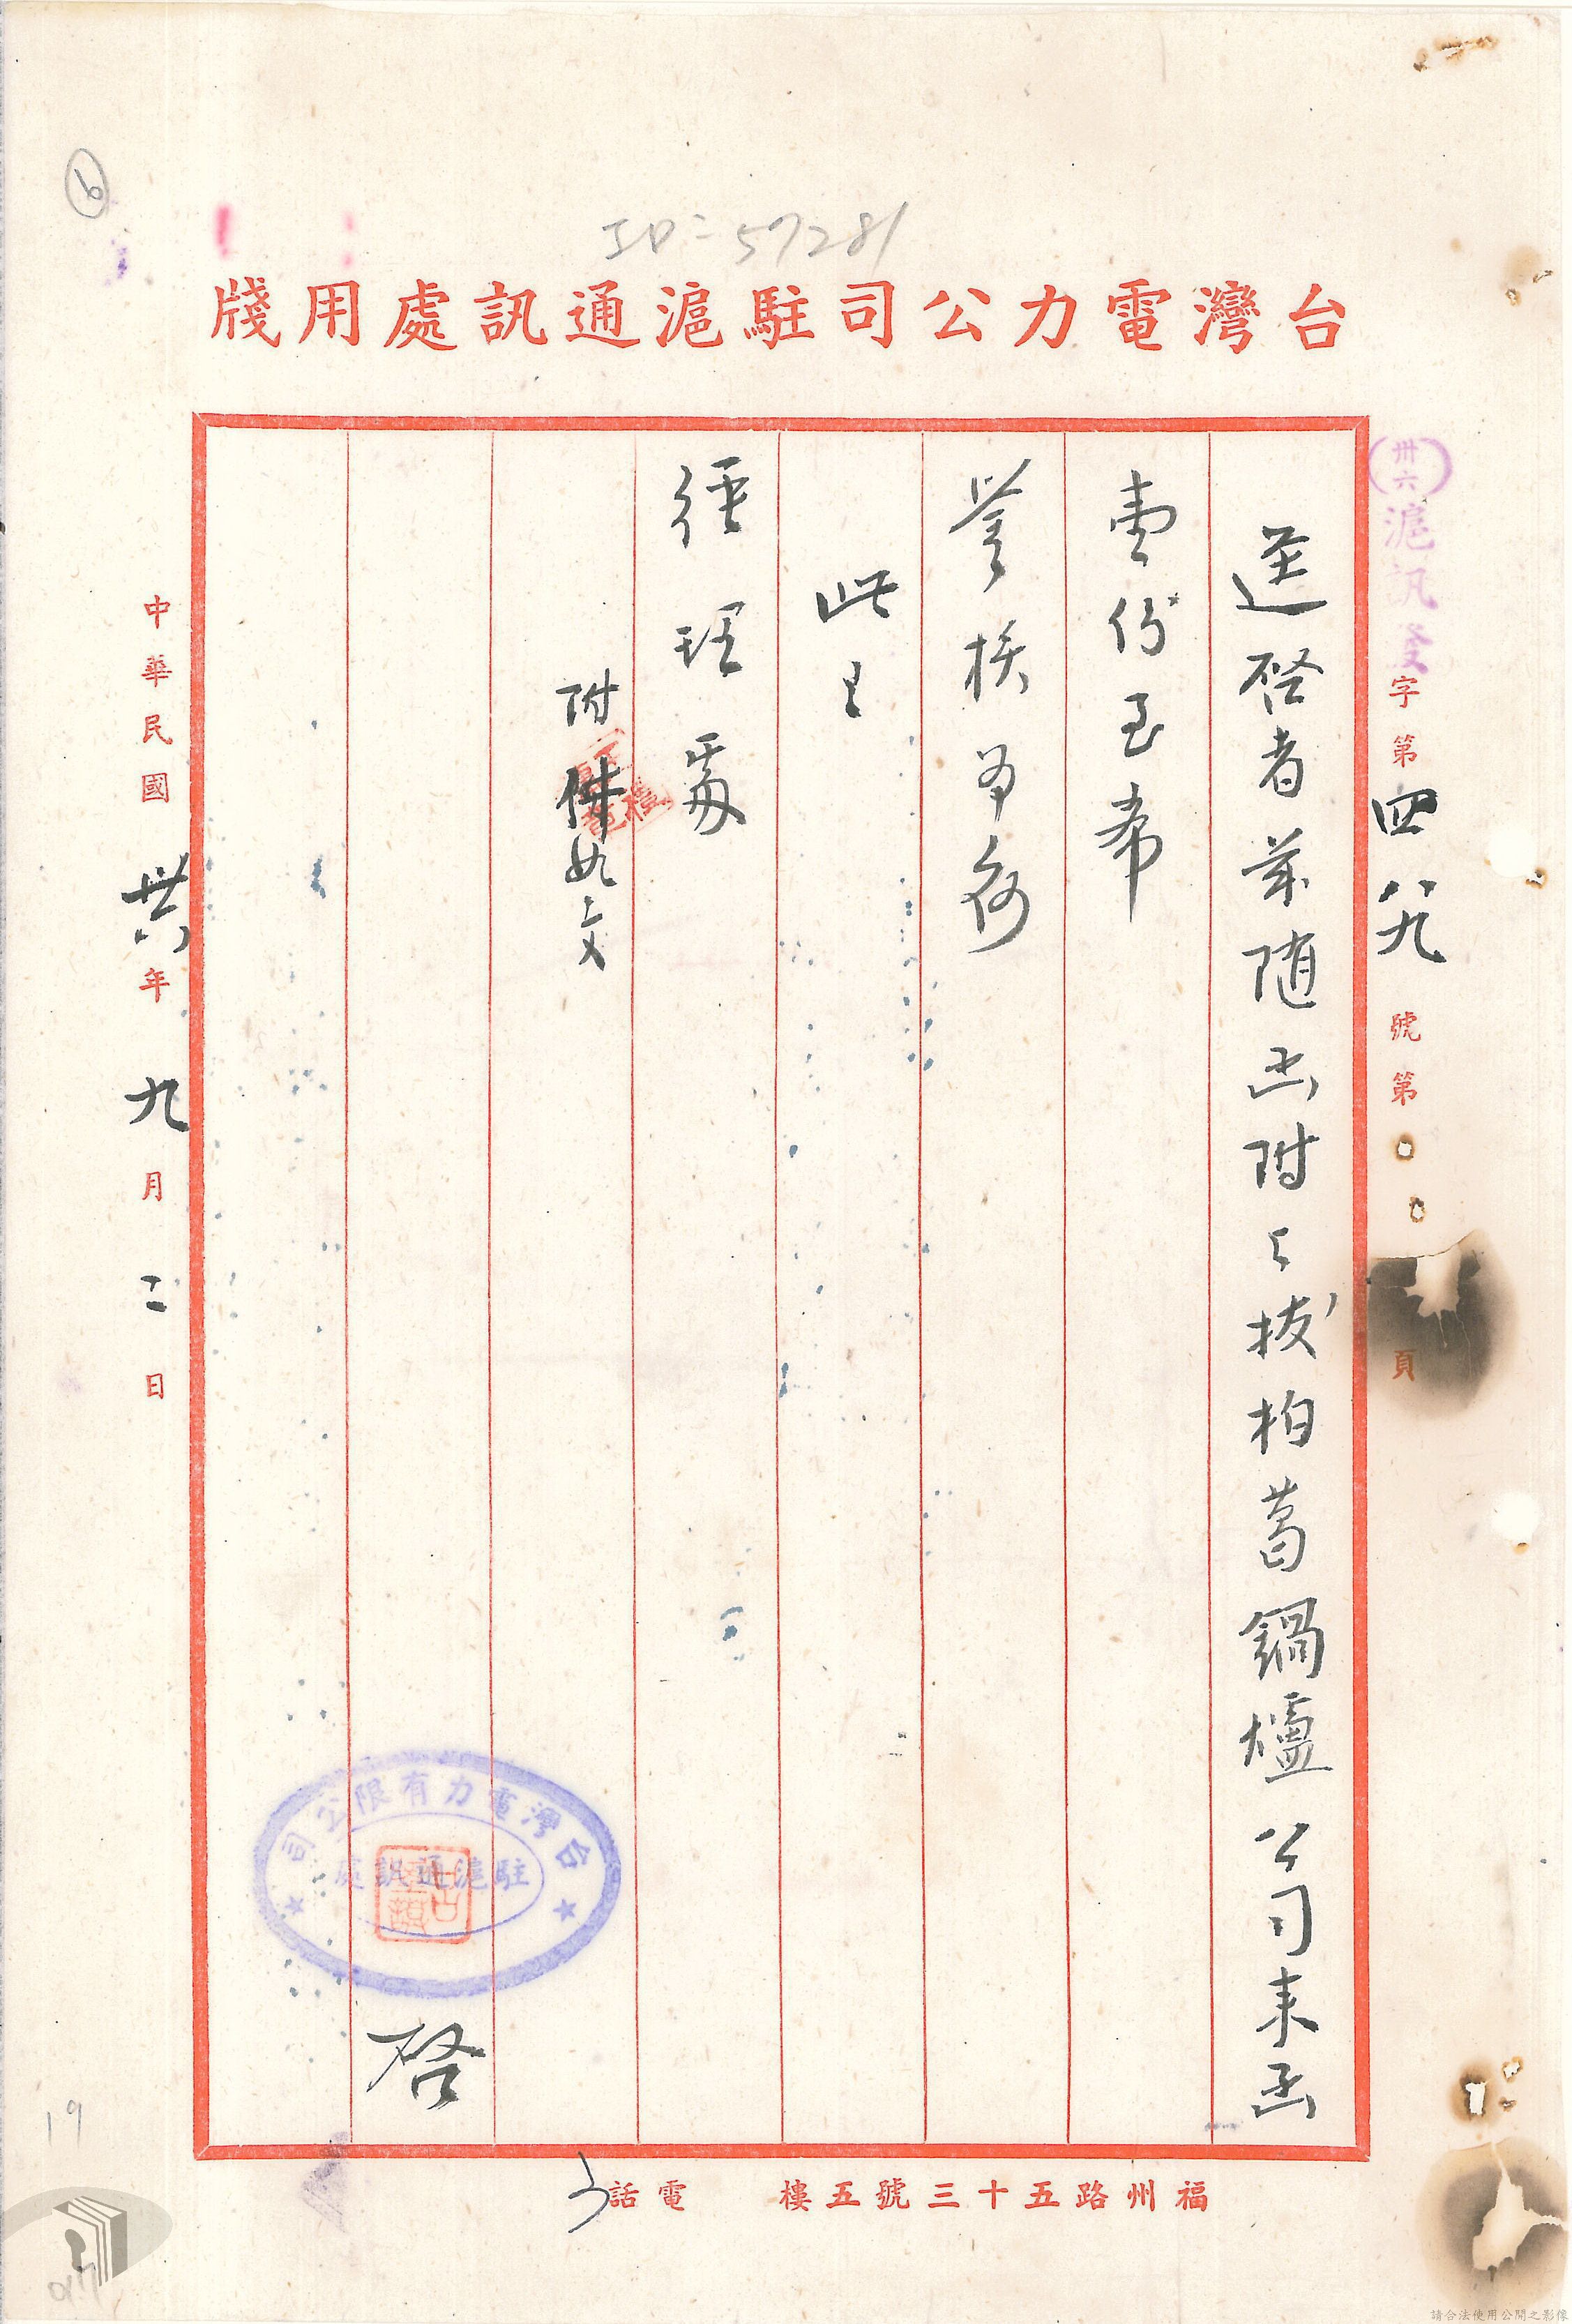 ID=57281
台灣電力公司駐滬通訊處用牋
(卅六)滬訊發字第四八九號第 頁
逕啓者茲隨函附上拔柏葛鍋爐公司來函
壹份至希
詧核為荷
此上
經理處
附件如文
台灣電力有限公司
駐滬通訊處
啓
中華民國卅六年九月二日
福州路五十三號五樓 電話
19
請合法使用公開之影像